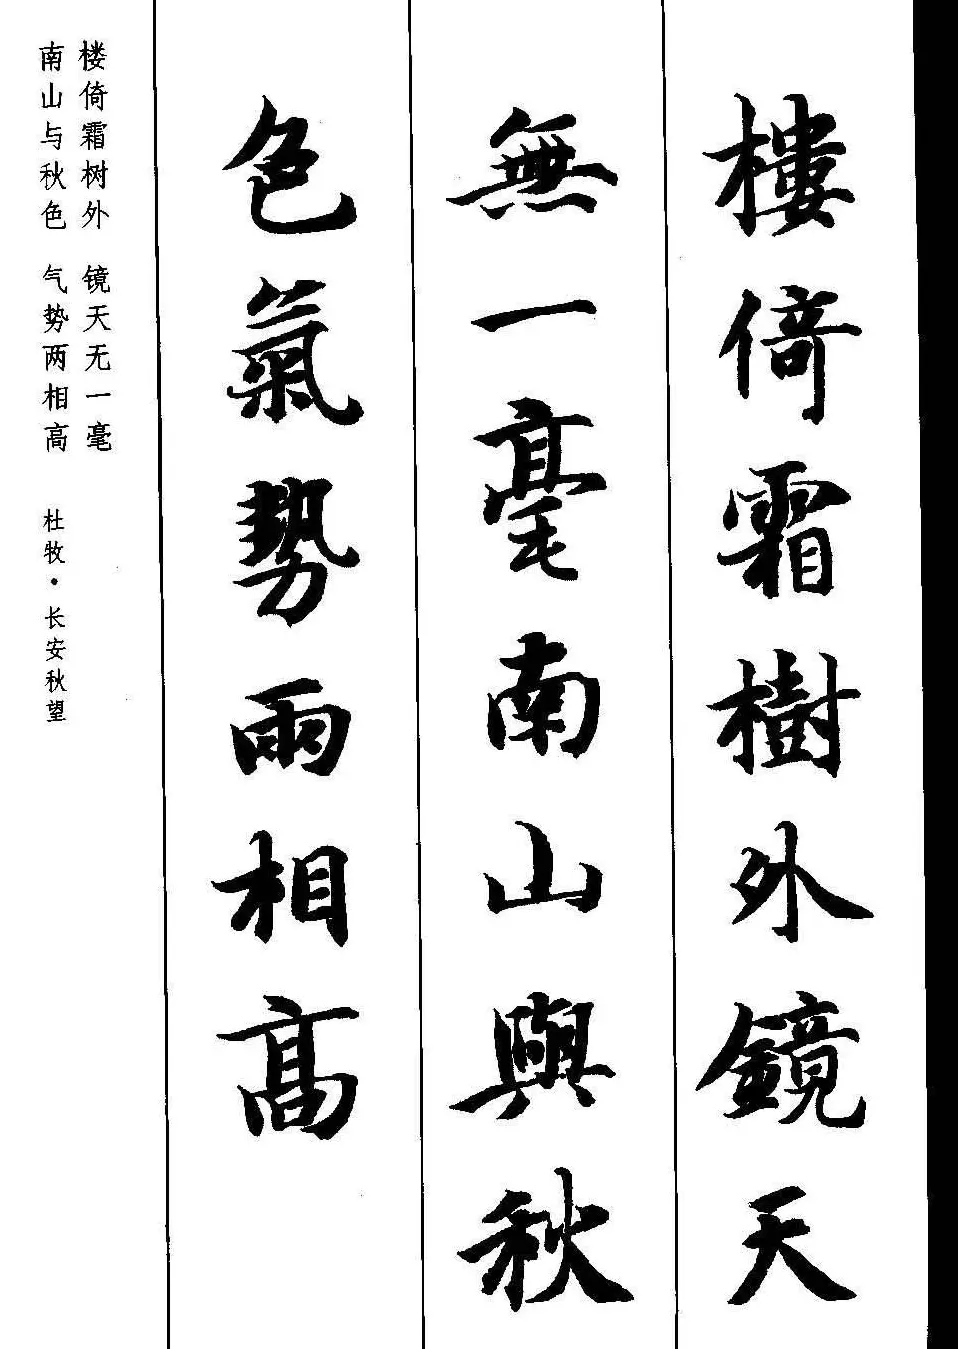 樓倚霜樹外鏡天
無一毫南山與秋
色氣勢兩相高
楼倚霜树外 镜天无一毫
南山与秋色 气势两相高 杜牧·长安秋望